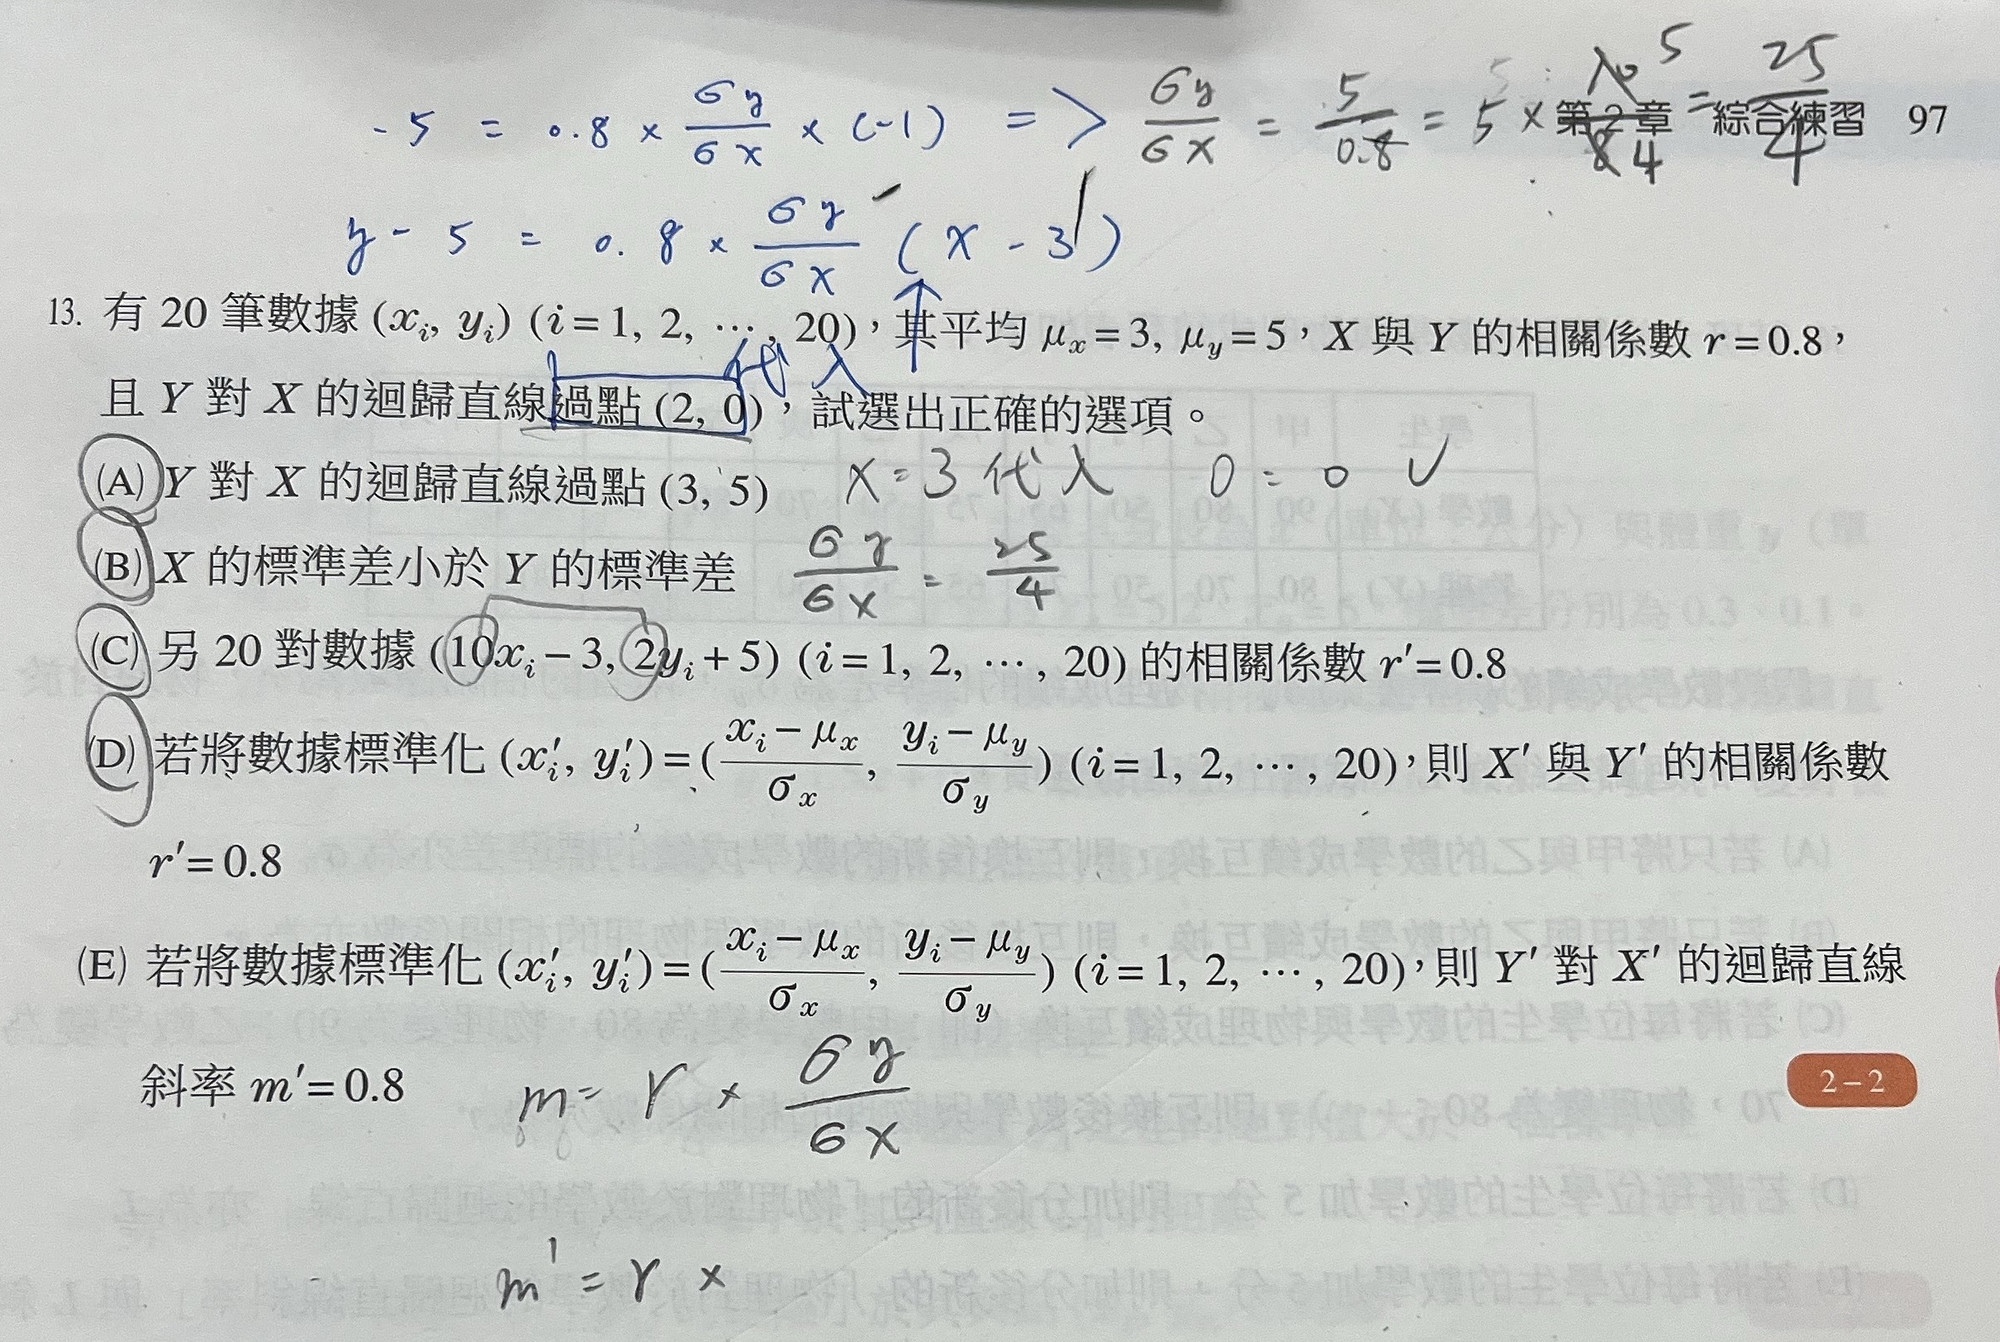 -5 = 0.8 × σy/σx × (-1) => σy/σx = 5/0.8 = 5 × 10/8 5/4 = 25/4
第2章 綜合練習 97
y - 5 = 0.8 × σy/σx (x - 3)
13. 有 20 筆數據 (xᵢ, yᵢ) (i = 1, 2, ⋯, 20),其平均 μₓ = 3, μy = 5,X 與 Y 的相關係數 r = 0.8,
代入
且 Y 對 X 的迴歸直線過點 (2, 0),試選出正確的選項。
(A) Y 對 X 的迴歸直線過點 (3, 5) x = 3 代入 0 = 0 ✓
(B) X 的標準差小於 Y 的標準差 σy/σx = 25/4
(C) 另 20 對數據 (10xᵢ − 3, 2yᵢ + 5) (i = 1, 2, ⋯, 20) 的相關係數 r′ = 0.8
(D) 若將數據標準化 (xᵢ′, yᵢ′) = ((xᵢ − μₓ)/σₓ, (yᵢ − μy)/σy) (i = 1, 2, ⋯, 20),則 X′ 與 Y′ 的相關係數
r′ = 0.8
(E) 若將數據標準化 (xᵢ′, yᵢ′) = ((xᵢ − μₓ)/σₓ, (yᵢ − μy)/σy) (i = 1, 2, ⋯, 20),則 Y′ 對 X′ 的迴歸直線
斜率 m′ = 0.8 m = r × σy/σx
2－2
m' = r ×